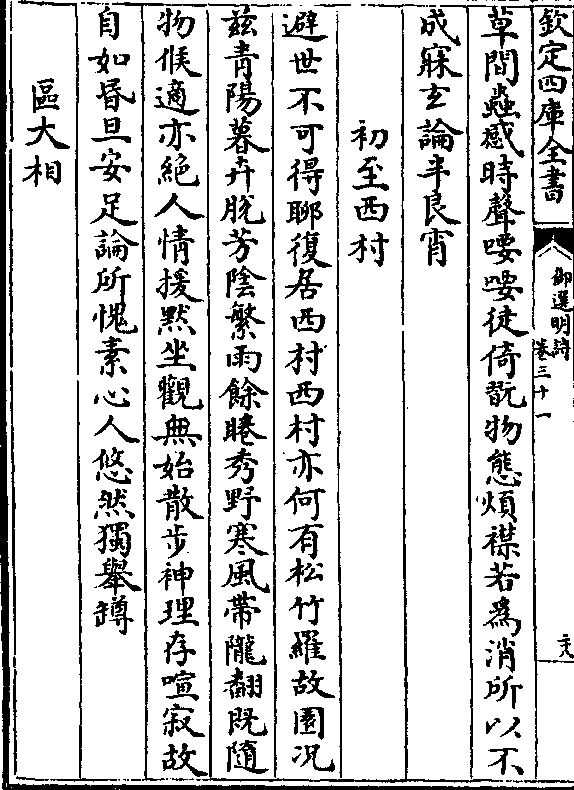 欽定四庫全書
御選明詩
卷三十一
二八
草間蟲感時聲喓喓徒倚翫物態煩襟若為消所以不
成寐玄論半良宵
初至西村
避世不可得聊復居西村西村亦何有松竹羅故園况
兹青陽暮卉脫芳陰繁雨餘畦秀野寒風帶隴翻既隨
物候適亦絶人情援黙坐觀無始散步神理存喧寂故
自如昏旦安足論所愧素心人悠然獨舉罇
區大相